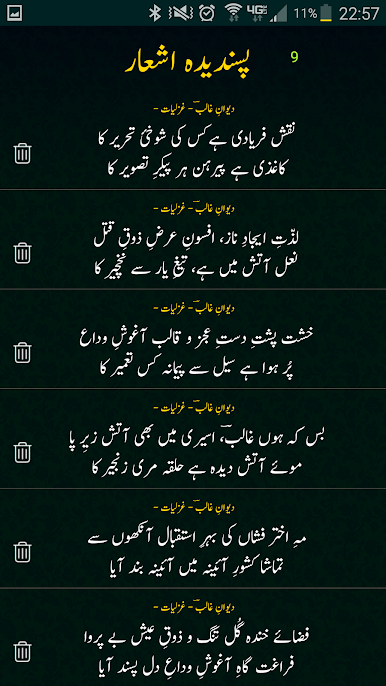 4G 11% 22:57
پسندیدہ اشعار 9
دیوانِ غالبؔ - غزلیات -
نقش فریادی ہے کس کی شوخیٔ تحریر کا
کاغذی ہے پیرہن ہر پیکرِ تصویر کا
دیوانِ غالبؔ - غزلیات -
لذّتِ ایجادِ ناز، افسونِ عرضِ ذوقِ قتل
نعل آتش میں ہے، تیغِ یار سے نخچیر کا
دیوانِ غالبؔ - غزلیات -
خشت پشتِ دستِ عجز و قالب آغوشِ وداع
پُر ہوا ہے سیل سے پیمانہ کس تعمیر کا
دیوانِ غالبؔ - غزلیات -
بس کہ ہوں غالبؔ، اسیری میں بھی آتش زیرِ پا
موئے آتش دیدہ ہے حلقہ مری زنجیر کا
دیوانِ غالبؔ - غزلیات -
مہِ اختر فشاں کی بہرِ استقبال آنکھوں سے
تماشا کشورِ آئینہ میں آئینہ بند آیا
دیوانِ غالبؔ - غزلیات -
فضائے خندہ گُل تنگ و ذوقِ عیش بے پروا
فراغت گاہِ آغوشِ وداعِ دل پسند آیا